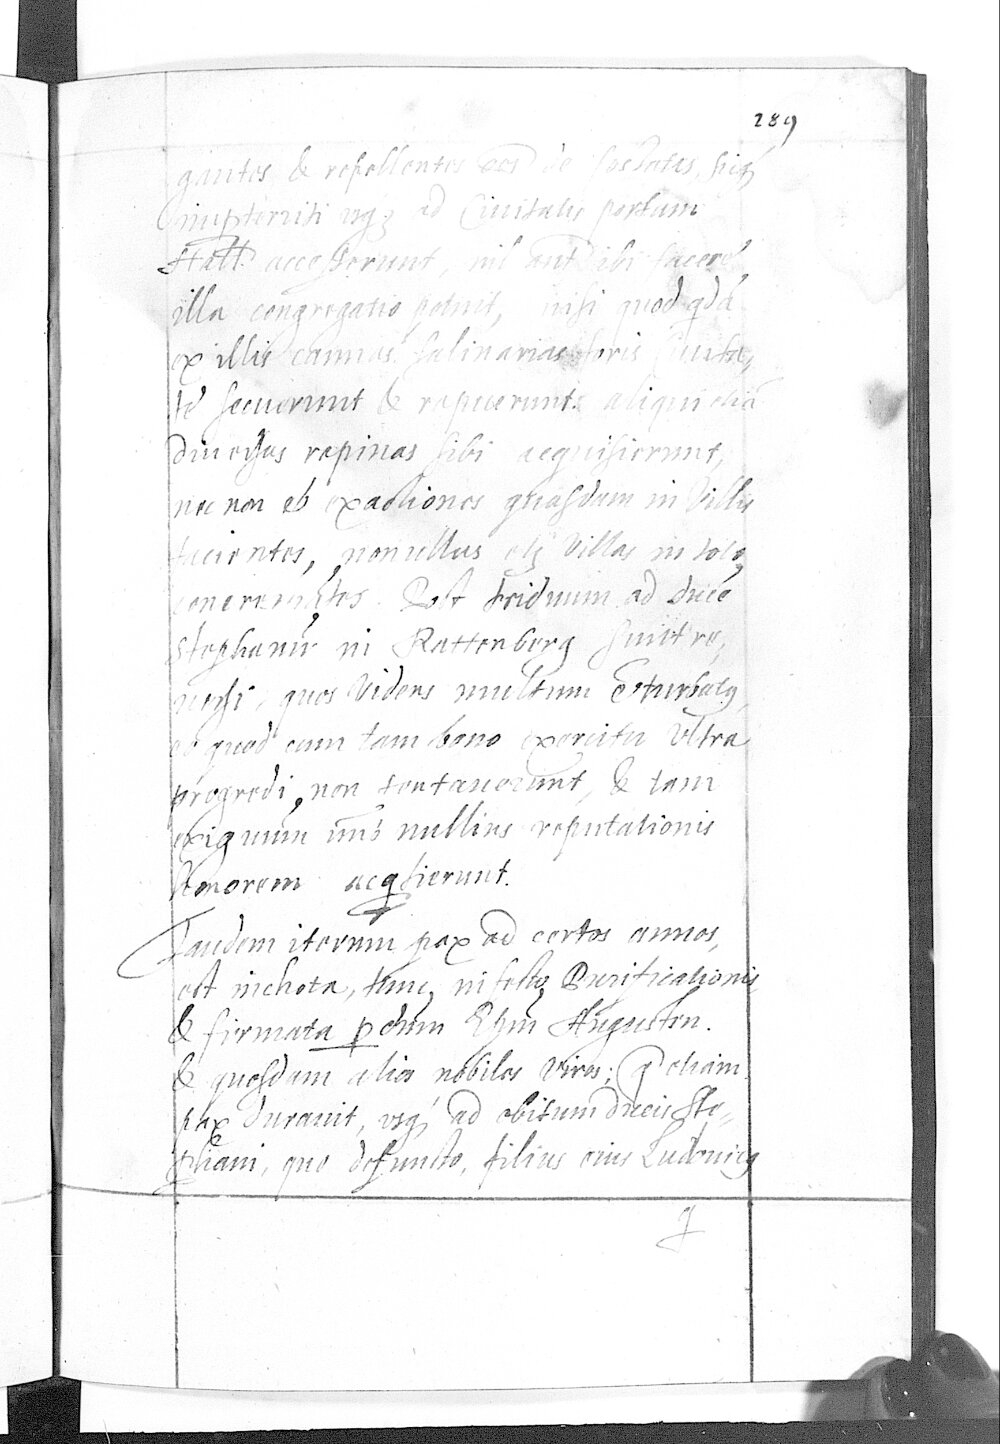 289
gantes & repellentes eos de fossatis, sicq́
imperterriti usq; ad Ciuitatis portum
Hall accesserunt nil aut ibi facere
illa congregatio potuit, nisi quod qdā
ex illis cannas salinarias foris Ciuita,
tē secuerunt & rapuerunt. aliqui etiā
diuersas rapinas sibi acquisierunt,
nec non et exactiones quasdam in Villis
facientes, nonullas etꝫ Villas in toto
concremantes. Post triduum ad ducē
Stephanū in Rattenberg sunt re,
uersi, quos Videns multum ꝯturbatꝰ,
eo quod cum tam bono exercitu Vltra
progredi, non tentauerunt, & tam
exiguum imò nullius reputationis
honorem acqsierunt.
Tandem iterum pax ad certos annos,
est inchota, tunc in festo Purificationis
& firmata p dnm Epm Augusten.
& quosdam alios nobiles Viros; q etiam
pax durauit, usq́ ad obitum ducis Ste„
phani, quo defuncto, filius eius Ludouicꝰ
q